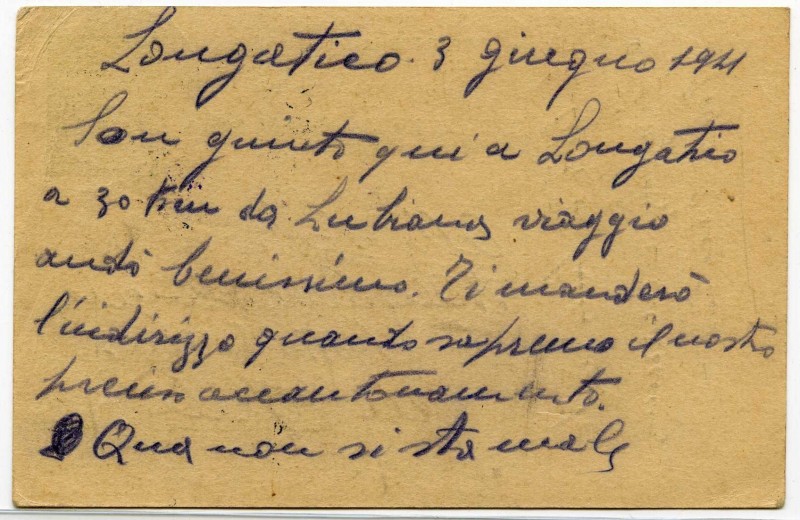 Longatico 3 giugno 1941
Son giunto qui a Longatico
a 30 km da Lubiana viaggio
andò benissimo. Ti manderò
l'indirizzo quando sapremo il nostro
preciso accantonamento.
Qua non si sta male